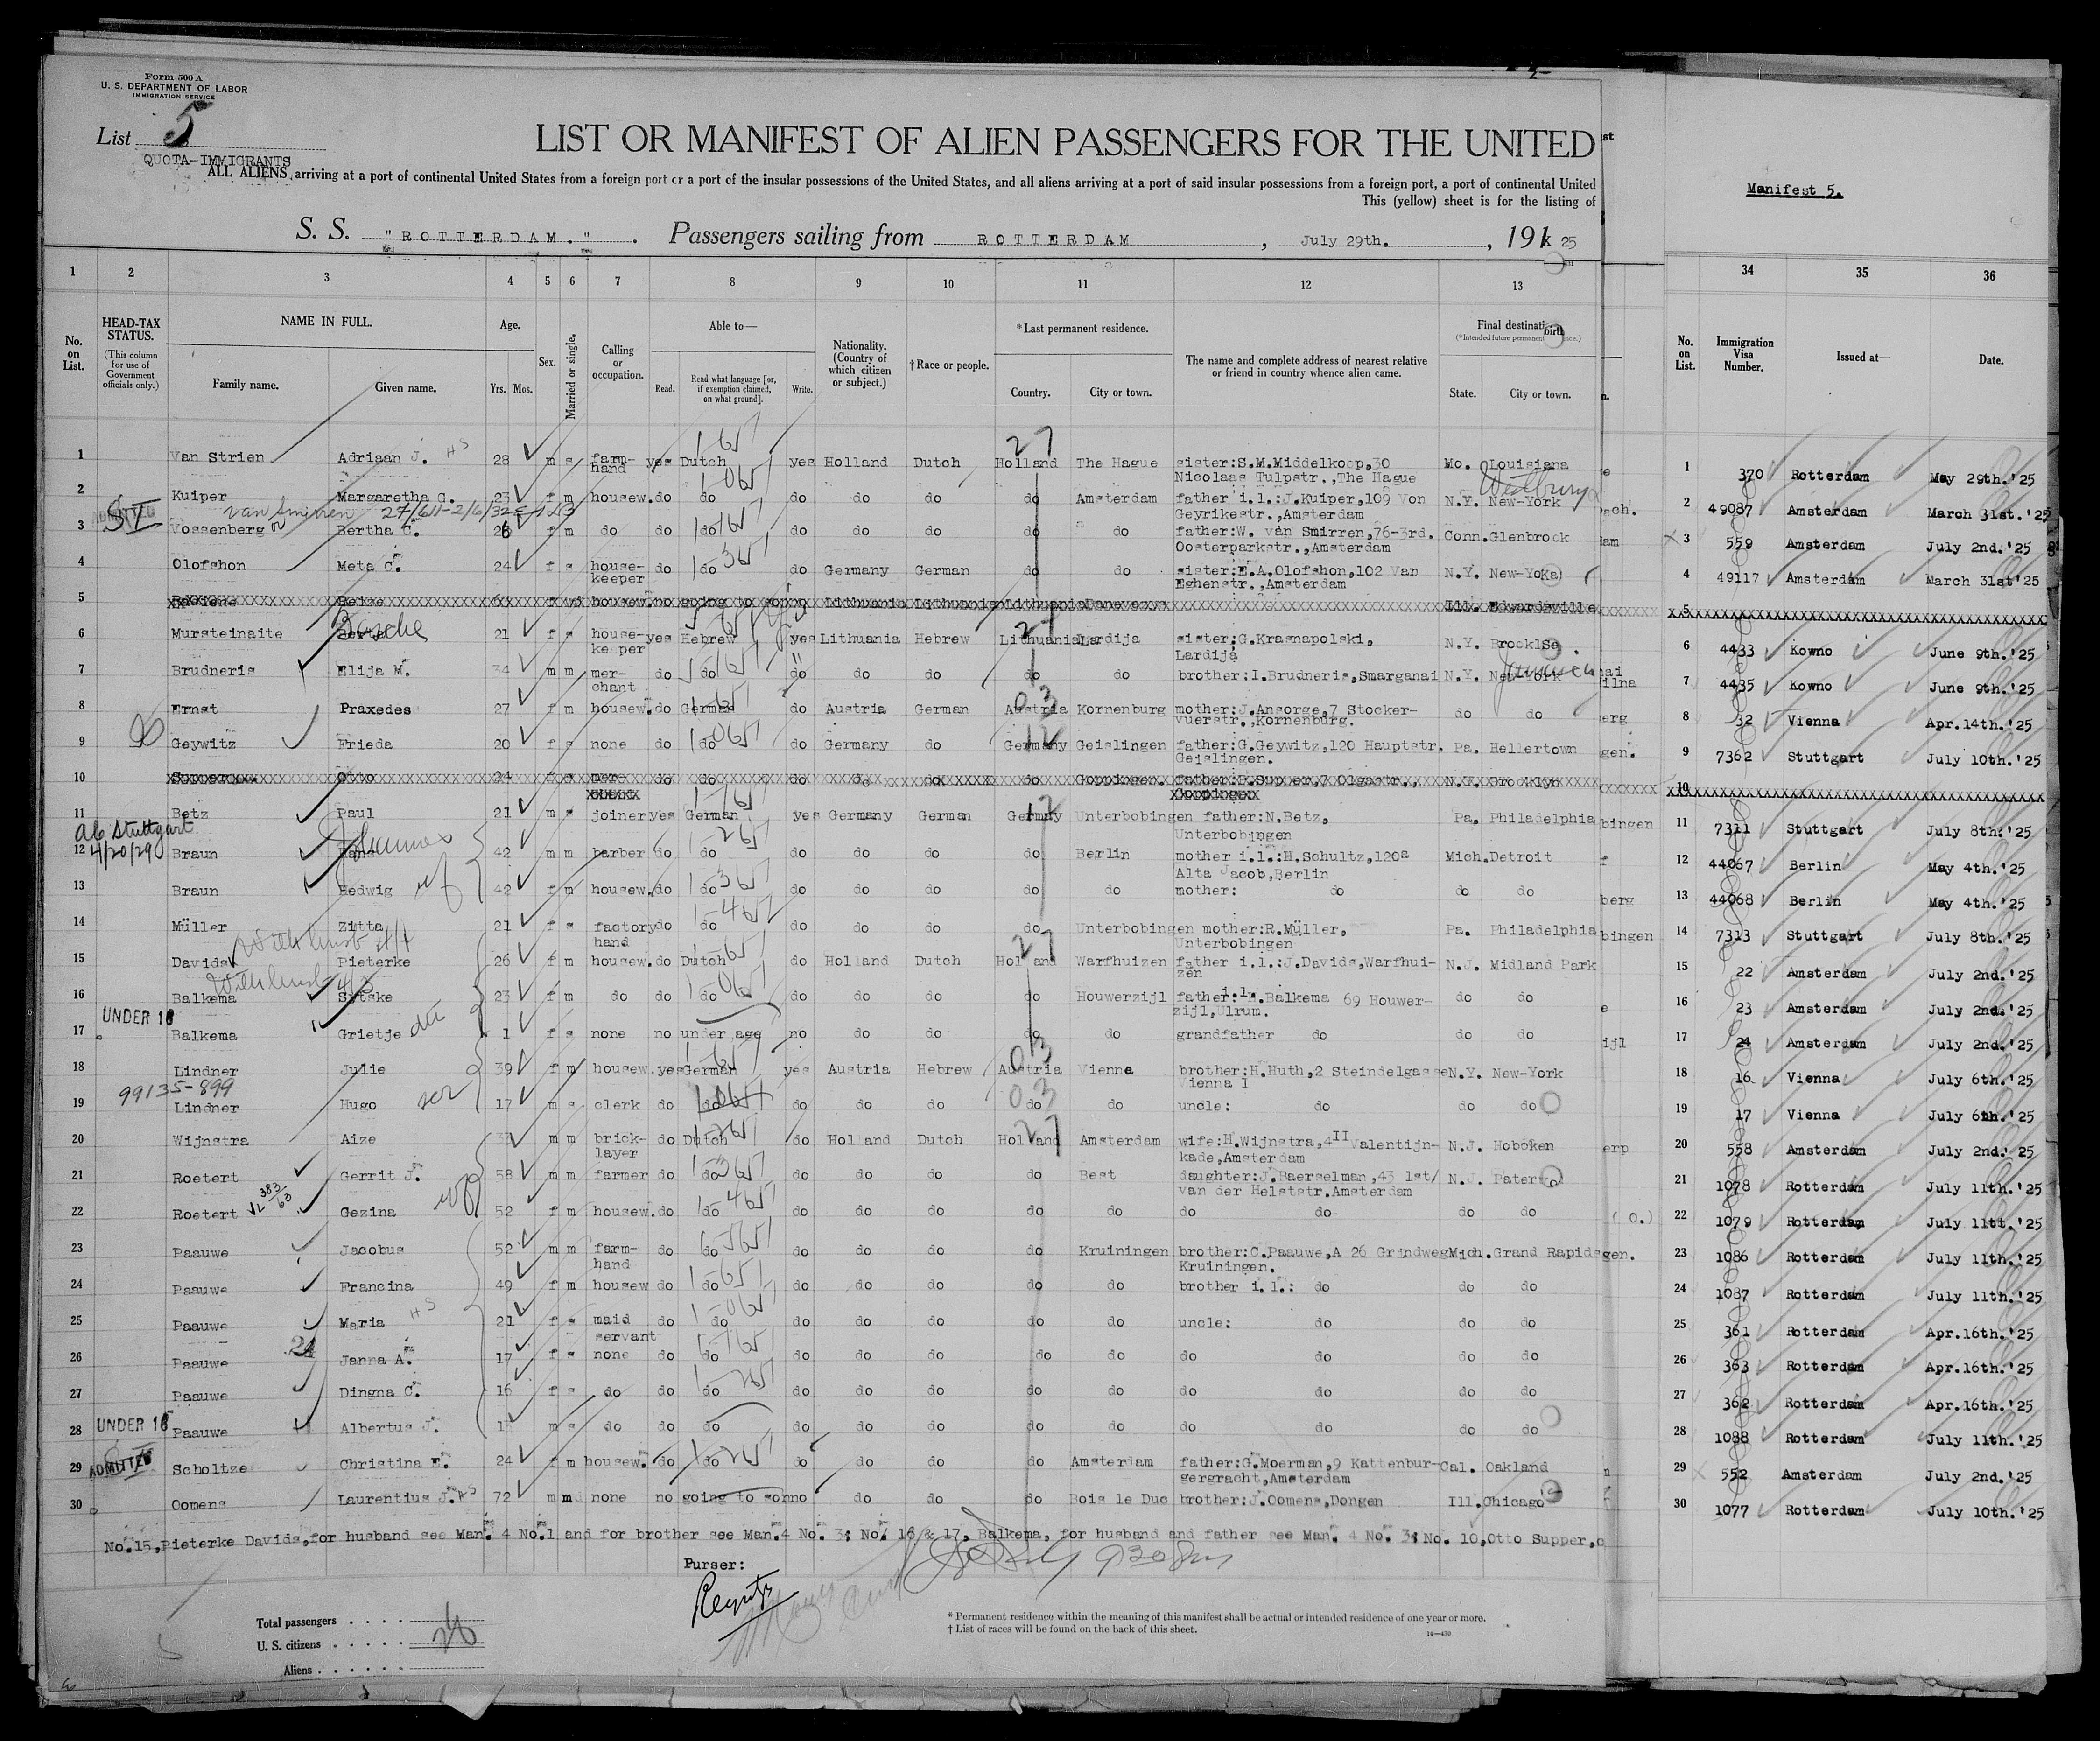 Form 500 A
U. S. DEPARTMENT OF LABOR
IMMIGRATION SERVICE
List 5
QUOTA-IMMIGRANTS
LIST OR MANIFEST OF ALIEN PASSENGERS FOR THE UNITED
ALL ALIENS arriving at a port of continental United States from a foreign port or a port of the insular possessions of the United States, and all aliens arriving at a port of said insular possessions from a foreign port, a port of continental United
This (yellow) sheet is for the listing of
Manifest 5.
S. S. "ROTTERDAM." Passengers sailing from ROTTERDAM, July 29th., 191 25
1 2 3 4 5 6 7 8 9 10 11 12 13 34 35 36
No. on List. HEAD-TAX STATUS. (This column for use of Government officials only.) NAME IN FULL. Family name. Given name. Age. Yrs. Mos. Sex. Married or single. Calling or occupation. Able to— Read. Read what language [or, if exemption claimed, on what ground]. Write. Nationality. (Country of which citizen or subject.) †Race or people. *Last permanent residence. Country. City or town. The name and complete address of nearest relative or friend in country whence alien came. Final destination (*Intended future permanent residence.) State. City or town. No. on List. Immigration Visa Number. Issued at— Date.
1 Van Strien Adriaan J. 28 m s farm-hand yes Dutch yes Holland Dutch Holland The Hague sister:S.M.Middelkoop,30 Nicolaas Tulpstr.,The Hague Mo. Louisiana 1 370 Rotterdam May 29th.'25
2 Kuiper Margaretha G. 23 f m housew. do do do do do do Amsterdam father i.l.:J.Kuiper,109 Von Geyrikestr.,Amsterdam N.Y. New-York Westbury 2 49087 Amsterdam March 31st.'25
van Smirren 27/611-2/6/32
3 ADMITTED SI Vossenberg Bertha C. 26 f m do do do do do do do do father:W. van Smirren,76-3rd. Oosterparkstr.,Amsterdam Conn. Glenbrook 3 559 Amsterdam July 2nd.'25
4 Olofshon Meta C. 24 f s house-keeper do do do Germany German do do sister:E.A.Olofshon,102 Van Eghenstr.,Amsterdam N.Y. New-York 4 49117 Amsterdam March 31st'25
5 housew. no going to Lithuania Lithuania Lithuania Panevezys Ill. Edwardsville 5
6 Mursteinaite Basche 21 f s house-keeper yes Hebrew yes Lithuania Hebrew Lithuania Lardija sister:G.Krasnapolski, Lardija N.Y. 6 4433 Kowno June 9th.'25
7 Brudneris Elija M. 34 m m mer-chant do do do do do do do brother:I.Brudneris,Smarganai N.Y. New-York 7 4435 Kowno June 9th.'25
8 Ernst Praxedes 27 f m housew. do German do Austria German Austria Kornenburg mother:J.Ansorge,7 Stocker-vuerstr.,Kornenburg. do do 8 32 Vienna Apr.14th.'25
9 Geywitz Frieda 20 f s none do do do Germany do Germany Geislingen father:G.Geywitz,120 Hauptstr. Geislingen. Pa. Hellertown 9 7362 Stuttgart July 10th.'25
10 Supper Otto 24 mer- do do do do do do Goppingen. father:R.Supper,7 Olgastr., Goppingen N.Y. Brooklyn 10
11 Betz Paul 21 m s joiner yes German yes Germany German Germany Unterbobingen father:N.Betz, Unterbobingen Pa. Philadelphia 11 7311 Stuttgart July 8th.'25
ab Stuttgart 4/20/29
12 Braun Johannes 42 m m barber do do do do do do Berlin mother i.l.:H.Schultz,120a Alta Jacob,Berlin Mich. Detroit 12 44067 Berlin May 4th.'25
13 Braun Hedwig 42 f m housew. do do do do do do do mother: do do do 13 44068 Berlin May 4th.'25
14 Müller Zitta 21 f s factory hand do do do do do do Unterbobingen mother:R.Müller, Unterbobingen Pa. Philadelphia 14 7313 Stuttgart July 8th.'25
15 Davids Pieterke 26 f m housew. do Dutch do Holland Dutch Holland Warfhuizen father i.l.:J.Davids,Warfhui-zen N.J. Midland Park 15 22 Amsterdam July 2nd.'25
16 Balkema Sytske 23 f m do do do do do do do Houwerzijl father i.l.:R.Balkema 69 Houwer-zijl,Ulrum. do do 16 23 Amsterdam July 2nd.'25
UNDER 16
17 Balkema Grietje 1 f s none no under age no do do do do grandfather do do do 17 24 Amsterdam July 2nd.'25
18 Lindner Julie 39 f m housew. yes German yes Austria Hebrew Austria Vienna brother:H.Huth,2 Steindelgasse Vienna I N.Y. New-York 18 16 Vienna July 6th.'25
99135-899
19 Lindner Hugo 17 m s clerk do do do do do do do uncle: do do do 19 17 Vienna July 6th.'25
20 Wijnstra Aize m m brick-layer do Dutch do Holland Dutch Holland Amsterdam wife:H.Wijnstra,4II Valentijn-kade,Amsterdam N.J. Hoboken 20 558 Amsterdam July 2nd.'25
21 Roetert Gerrit J. 58 m m farmer do do do do do do Best daughter:J.Baerselman,43 1st/ van der Helststr.Amsterdam N.J. 21 1078 Rotterdam July 11th.'25
22 Roetert Gezina 52 f m housew. do do do do do do do do do do do 22 1079 Rotterdam July 11tt.'25
23 Paauwe Jacobus 52 m m farm-hand do do do do do do Kruiningen brother:C.Paauwe,A 26 Grindweg Kruiningen. Mich. Grand Rapids 23 1086 Rotterdam July 11th.'25
24 Paauwe Francina 49 f m housew do do do do do do do brother i.l.: do do do 24 1087 Rotterdam July 11th.'25
25 Paauwe Maria 21 f s maid servant do do do do do do do uncle: do do do 25 361 Rotterdam Apr.16th.'25
26 Paauwe Janna A. 17 f s none do do do do do do do do do do do 26 363 Rotterdam Apr.16th.'25
27 Paauwe Dingna C. 16 f s do do do do do do do do do do do do 27 362 Rotterdam Apr.16th.'25
28 UNDER 16 Paauwe Albertus J. m s do do do do do do do do do do do do 28 1088 Rotterdam July 11th.'25
29 ADMITTED Scholtze Christina E. 24 f m housew. do do do do do do Amsterdam father:G.Moerman,9 Kattenbur-gergracht,Amsterdam Cal. Oakland 29 552 Amsterdam July 2nd.'25
30 Oomens Laurentius J. 72 m m none no going to son no do do do Bois le Duc brother:J.Oomens,Dongen Ill. Chicago 30 1077 Rotterdam July 10th.'25
No.15,Pieterke Davids,for husband see Man. 4 No.1 and for brother see Man.4 No. 3; No. 16 & 17, Balkema, for husband and father see Man. 4 No. 3; No. 10,Otto Supper,
Purser:
Total passengers
U. S. citizens
Aliens
* Permanent residence within the meaning of this manifest shall be actual or intended residence of one year or more.
† List of races will be found on the back of this sheet.
14—430